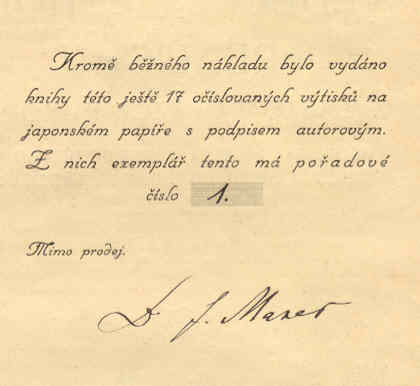 Kromě běžného nákladu bylo vydáno
knihy této ještě 17 očíslovaných výtisků na
japonském papíře s podpisem autorovým.
Z nich exemplář tento má pořadové
číslo 1.
Mimo prodej.
Dr. J. Mareš